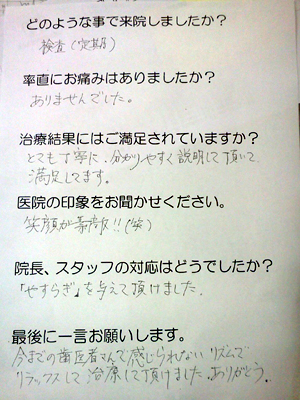 どのような事で来院しましたか？
検査(定期)
率直にお痛みはありましたか？
ありませんでした。
治療結果にはご満足されていますか？
とても丁寧に、分かりやすく説明して頂いて、
満足してます。
医院の印象をお聞かせください。
笑顔が素敵!!(笑)
院長、スタッフの対応はどうでしたか？
「やすらぎ」を与えて頂けました。
最後に一言お願いします。
今までの歯医者さんで感じられないリズムで
リラックスして治療して頂けました。ありがとう。